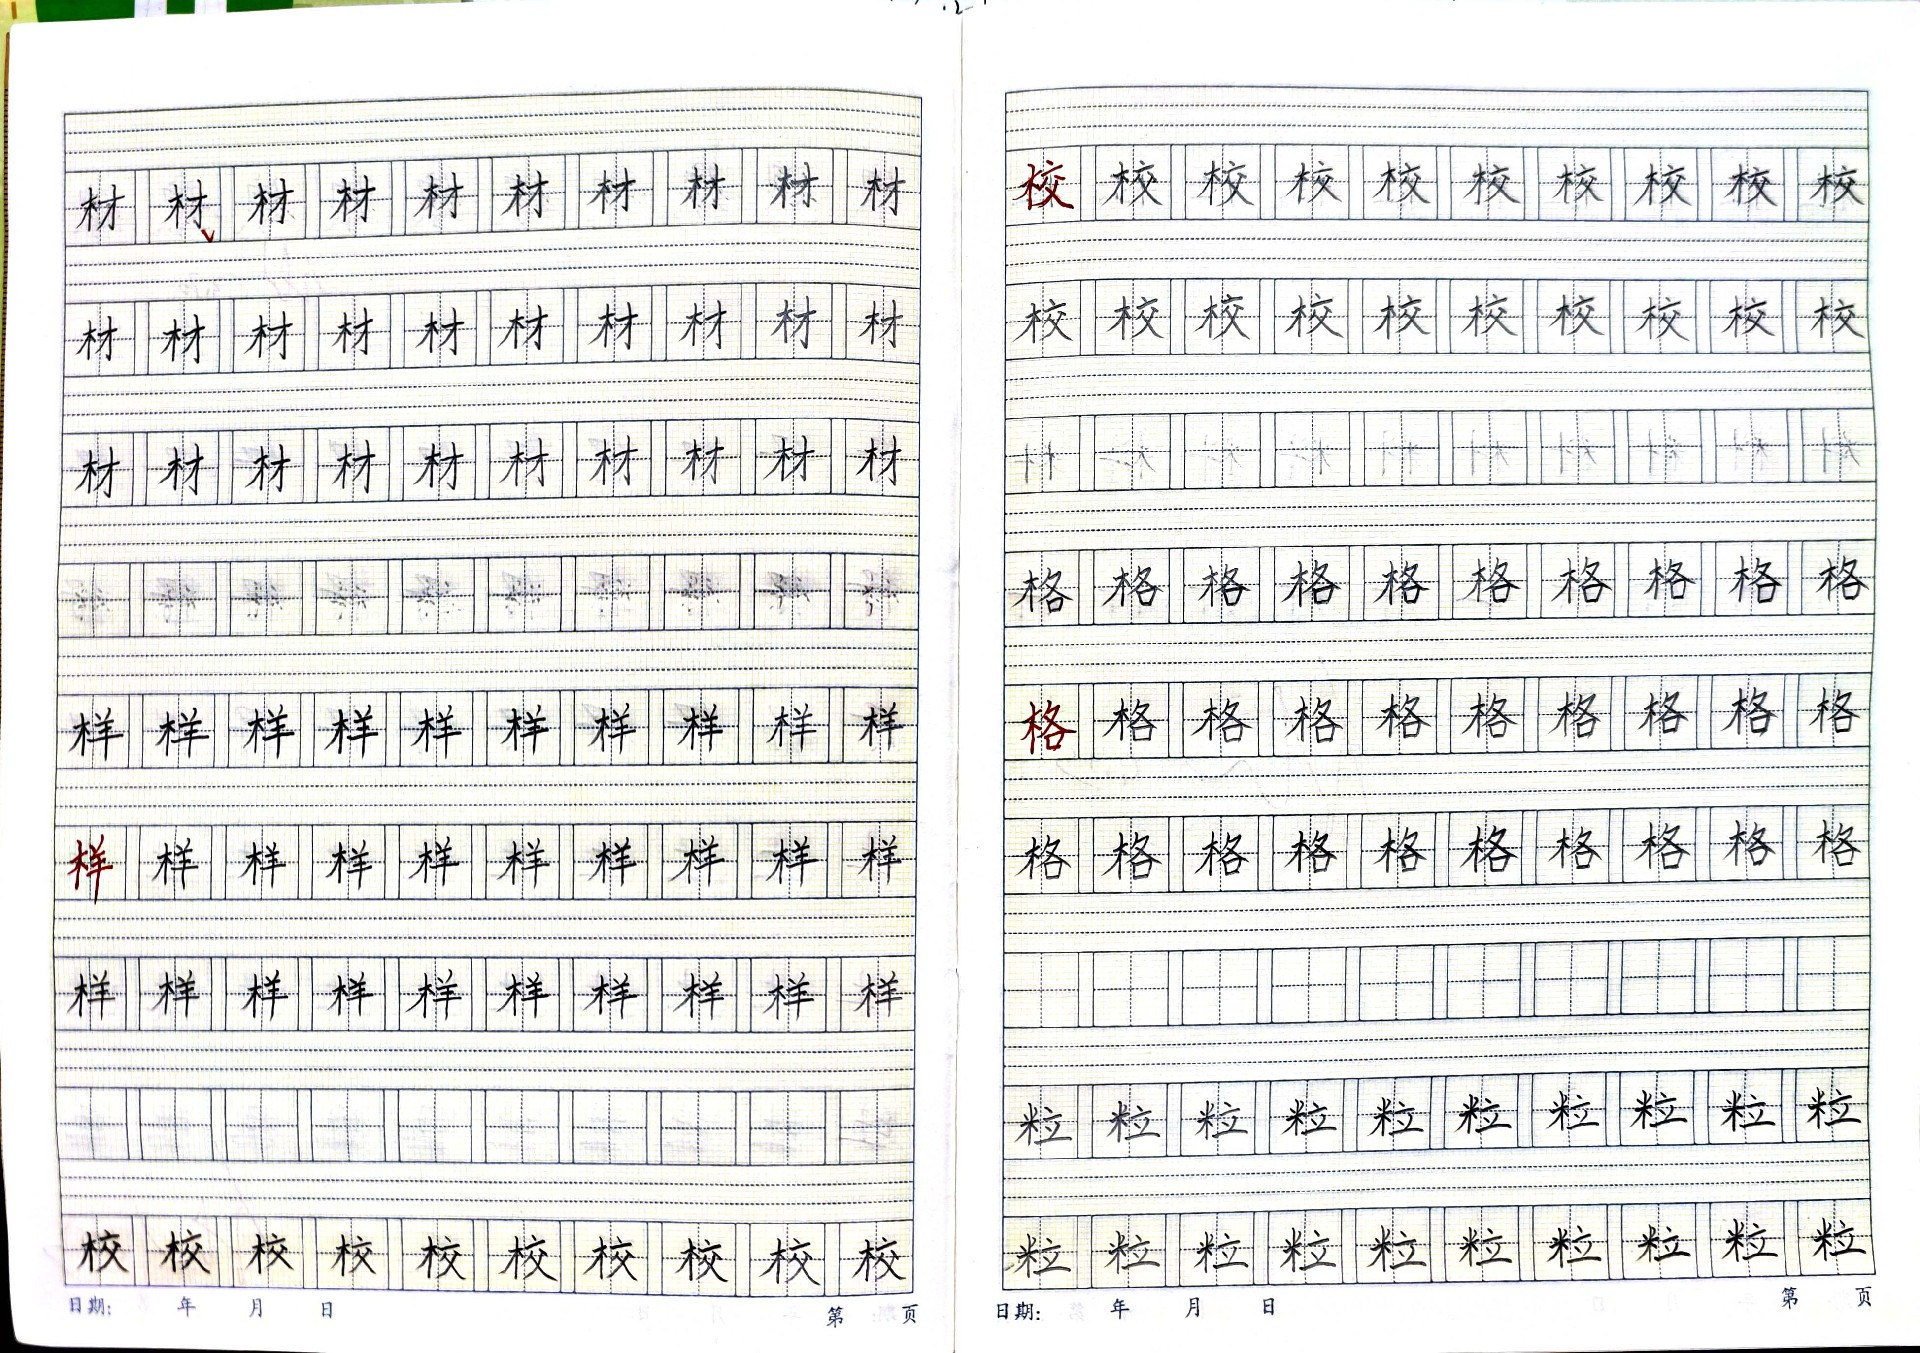 材材材材材材材材材材
材材材材材材材材材材
材材材材材材材材材材
样样样样样样样样样样
样样样样样样样样样样
样样样样样样样样样样
校校校校校校校校校校
日期: 年 月 日 第 页
校校校校校校校校校校
校校校校校校校校校校
格格格格格格格格格格
格格格格格格格格格格
格格格格格格格格格格
粒粒粒粒粒粒粒粒粒粒
粒粒粒粒粒粒粒粒粒粒
日期: 年 月 日 第 页